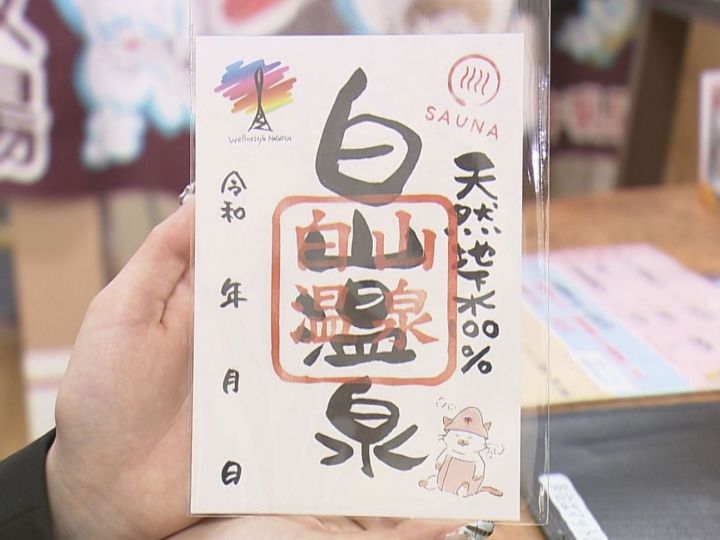 SAUNA
天然地下水100%
白山温泉
白山
温泉
Wellnesslife NAGOYA
令和
年
月
日